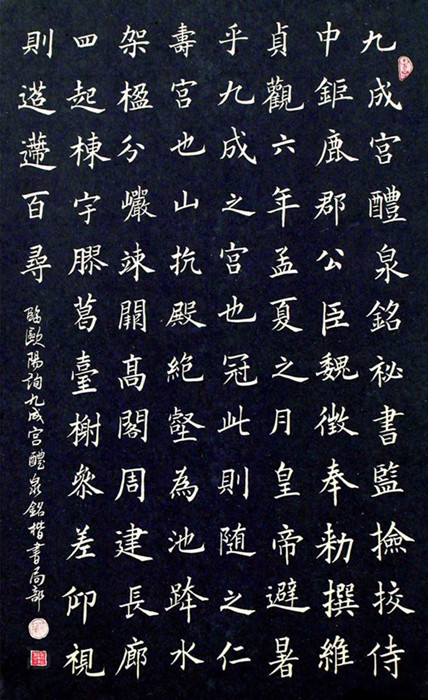 九成宮醴泉銘祕書監撿挍侍
中鉅鹿郡公臣魏徵奉勑撰維
貞觀六年孟夏之月皇帝避暑
乎九成之宮也冠此則随之仁
壽宮也山抗殿絶壑為池跨水
架楹分巗竦闕高閣周建長廊
四起棟宇膠葛臺榭參差仰視
則迢遰百尋
臨歐陽詢九成宮醴泉銘楷書局部